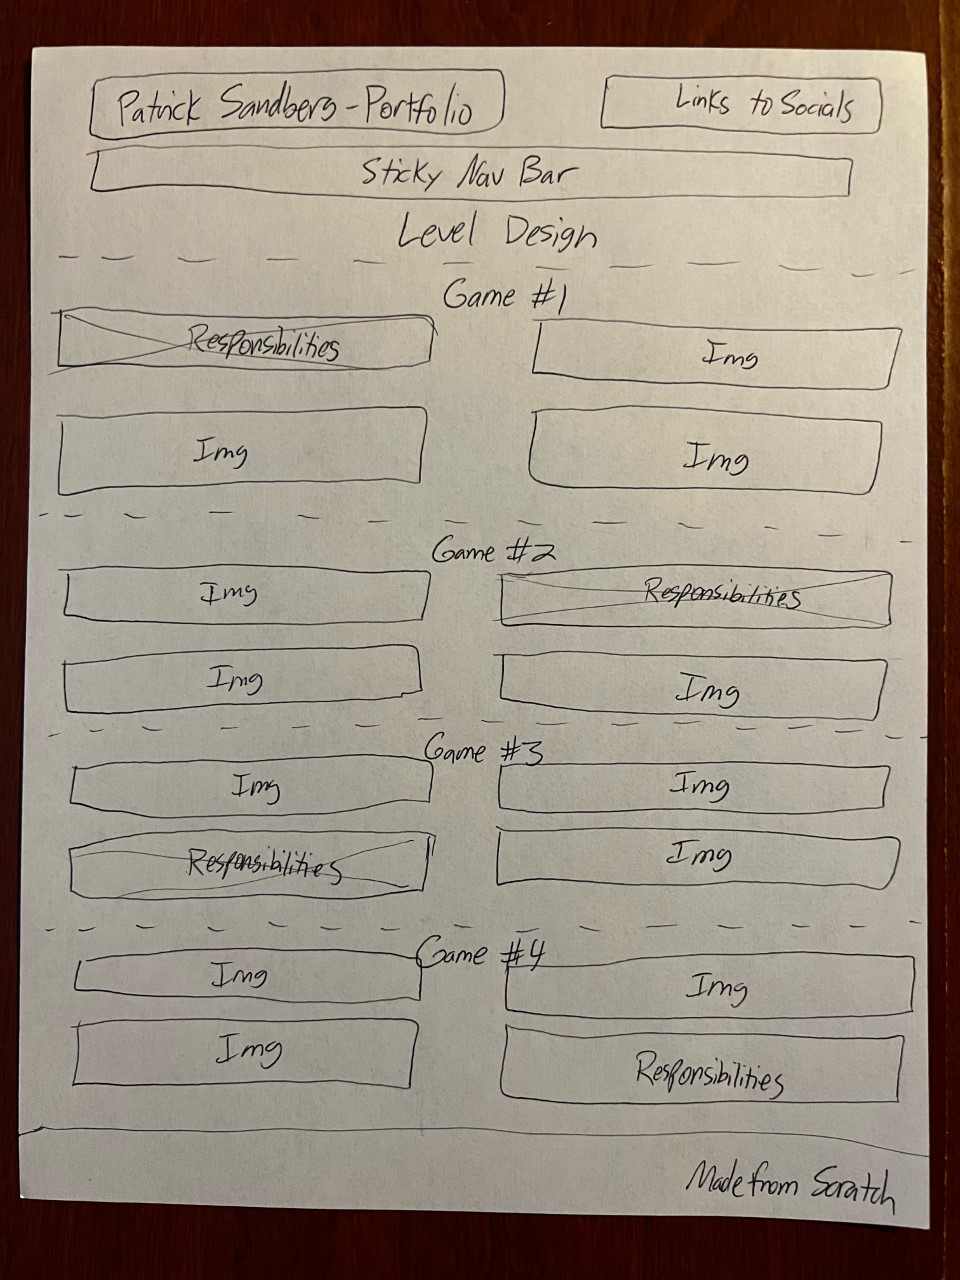 Patrick Sandberg - Portfolio
Links to Socials
Sticky Nav Bar
Level Design
Game #1
Responsibilities
Img
Img
Img
Game #2
Img
Responsibilities
Img
Img
Game #3
Img
Img
Responsibilities
Img
Game #4
Img
Img
Img
Responsibilities
Made from Scratch